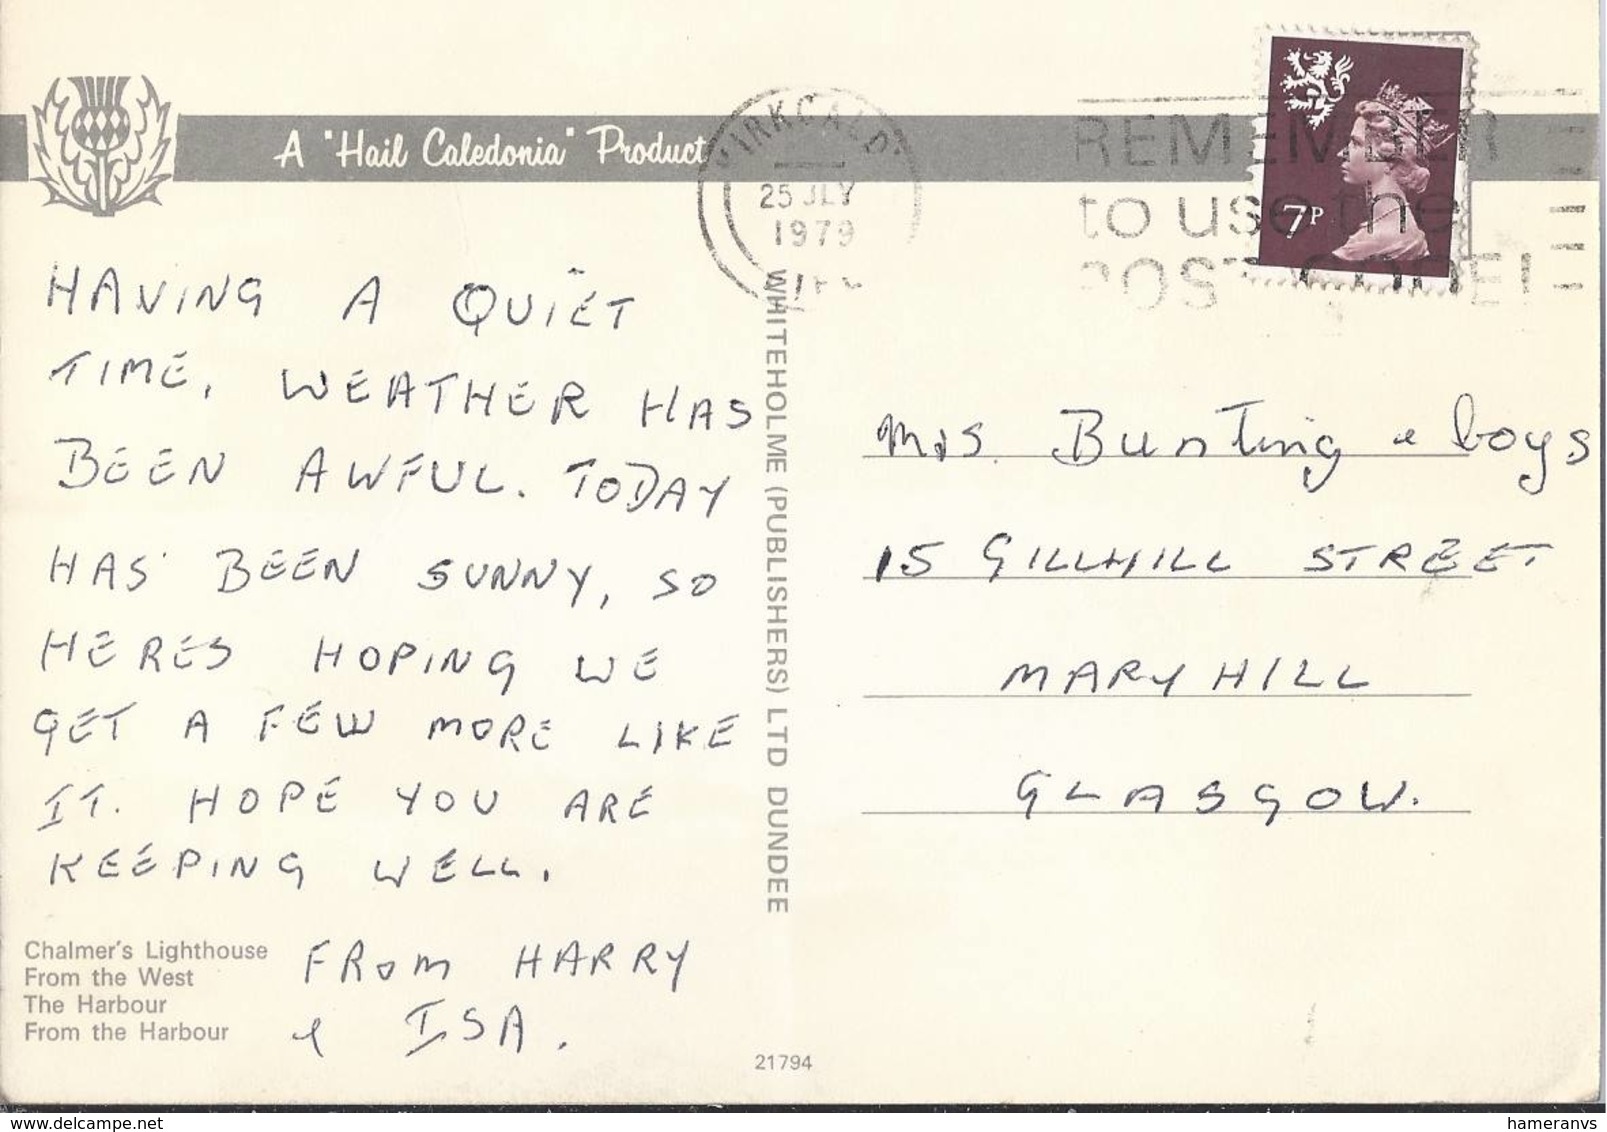 A "Hail Caledonia" Product
KIRKCALDY
25 JLY
1979
REMEMBER
to use the
POST CODE!
7P
HAVING A QUIET
TIME, WEATHER HAS
BEEN AWFUL. TODAY
HAS BEEN SUNNY, SO
HERES HOPING WE
GET A FEW MORE LIKE
IT. HOPE YOU ARE
KEEPING WELL.
FROM HARRY
& ISA.
Chalmer's Lighthouse
From the West
The Harbour
From the Harbour
WHITEHOLME (PUBLISHERS) LTD DUNDEE
21794
Mrs. Bunting & boys
15 GILLHILL STREET
MARYHILL
GLASGOW.
www.delcampe.net
hameranvs